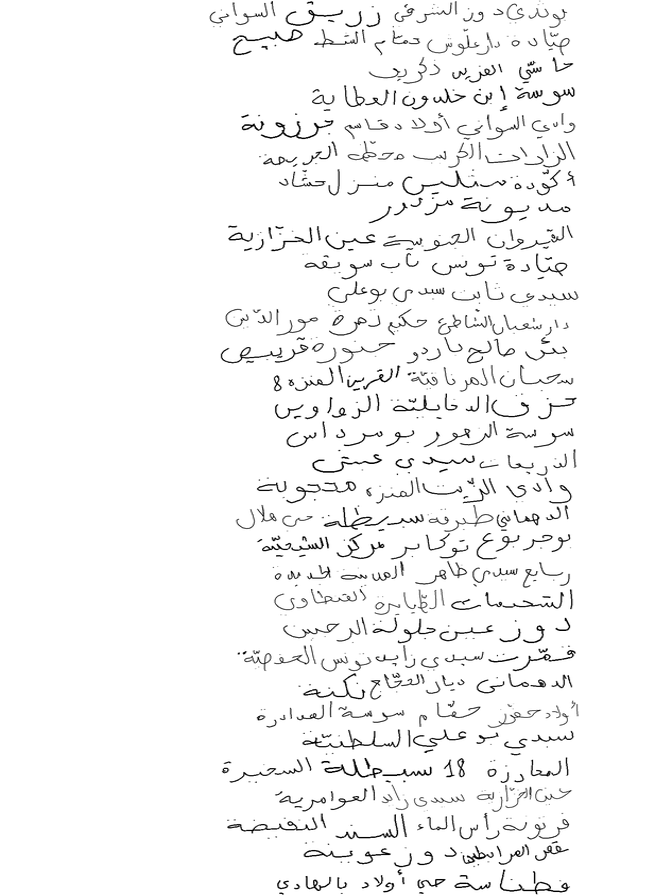 بوندي دوز الشرقي زريق السواني
صيّادة دار علّوش حمّام الشط هبيج
حاسّي الفريد ذكريف
سوسة إبن خلدون العطاية
وادي السواني أولاد قاسم جرزونة
الزارات الكريب محطّة الجريصة
أكّودة ستلين منزل حشّاد
مديونة مزدور
القيروان الجنوبية عين الخرّازية
صيّادة تونس باب سويقة
سيدي ثابت سيدي بوعلي
دار شعبان الشاطئ حكيم زهرة نور الدّين
بئر صالح باردو خنورة قريبص
سحبان المرناقيّة القرين المنزه 8
حزق الدخايليّة الزواوين
سوسة الزهور بومرداس
الذريعات سيدي عيش
وادي الزيت المنزه محجوبة
الدهماني طبرقة سبيطلة حي هلال
بوجربوع توكابر مركز الشيحيّة
ربايع سيدي ظاهر المدينة الجديدة
الشحيمات الطيايرة الفطاوي
دوز عين جلولة الرحين
غمّرت سيدي زايد تونس الحفصيّة
الدهماني ديار الحجّاج نكتة
أولاد حفوز حمّام سوسة الغدادرة
سيدي بوعلي السلطنيّة
المعازرة 18 سبيطلة السخيرة
عين الخرّازية سيدي زايد العوامرية
فرتونة رأس الماء السند النفيضة
قفص المرابطين دوز عوينة
فطناسة حي أولاد بالهادي